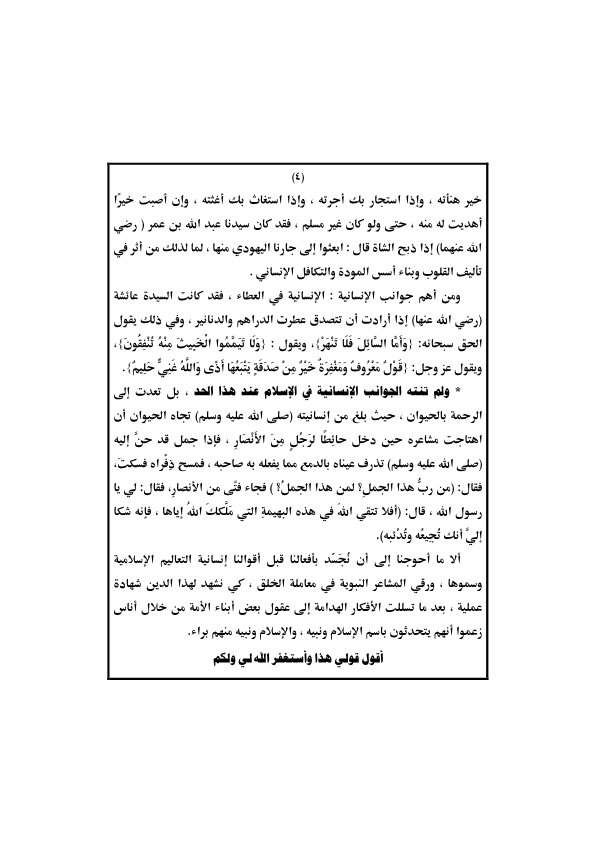 (٤)
خير هنأته ، وإذا استجار بك أجرته ، وإذا استغاث بك أغثته ، وإن أصبت خيرًا
أهديت له منه ، حتى ولو كان غير مسلم ، فقد كان سيدنا عبد الله بن عمر ( رضي
الله عنهما) إذا ذبح الشاة قال : ابعثوا إلى جارنا اليهودي منها ، لما لذلك من أثر في
تأليف القلوب وبناء أسس المودة والتكافل الإنساني .
ومن أهم جوانب الإنسانية : الإنسانية في العطاء ، فقد كانت السيدة عائشة
(رضي الله عنها) إذا أرادت أن تتصدق عطرت الدراهم والدنانير ، وفي ذلك يقول
الحق سبحانه: {وَأَمَّا السَّائِلَ فَلَا تَنْهَرْ}، ويقول : {وَلَا تَيَمَّمُوا الْخَبِيثَ مِنْهُ تُنْفِقُونَ}،
ويقول عز وجل: {قَوْلٌ مَعْرُوفٌ وَمَغْفِرَةٌ خَيْرٌ مِنْ صَدَقَةٍ يَتْبَعُهَا أَذًى وَاللَّهُ غَنِيٌّ حَلِيمٌ}.
* ولم تنته الجوانب الإنسانية في الإسلام عند هذا الحد ، بل تعدت إلى
الرحمة بالحيوان ، حيث بلغ من إنسانيته (صلى الله عليه وسلم) تجاه الحيوان أن
اهتاجت مشاعره حين دخل حائِطًا لرَجُلٍ مِنَ الأَنْصَارِ ، فإذا جمل قد حنَّ إليه
(صلى الله عليه وسلم) تذرف عيناه بالدمع مما يفعله به صاحبه ، فمسح ذِفْراه فسكت،
فقال: (من ربُّ هذا الجملِ؟ لمن هذا الجملُ؟ ) فجاء فتًى من الأنصارِ، فقال: لي يا
رسول الله ، قال: (أفلا تتقي اللهَ في هذه البهيمةِ التي مَلَّكك اللهُ إياها ، فإنه شكا
إليَّ أنك تُجِيعُه وتُدْئبه).
ألا ما أحوجنا إلى أن نُجَسِّد بأفعالنا قبل أقوالنا إنسانية التعاليم الإسلامية
وسموها ، ورقي المشاعر النبوية في معاملة الخلق ، كي نشهد لهذا الدين شهادة
عملية ، بعد ما تسللت الأفكار الهدامة إلى عقول بعض أبناء الأمة من خلال أناس
زعموا أنهم يتحدثون باسم الإسلام ونبيه ، والإسلام ونبيه منهم براء.
أقول قولي هذا وأستغفر الله لي ولكم